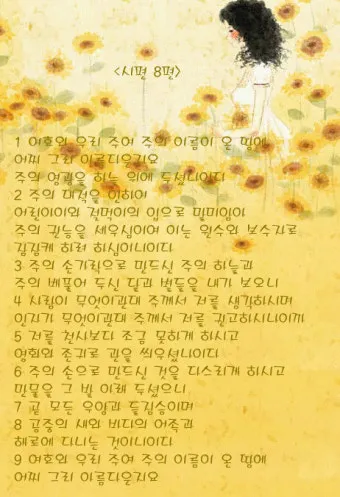 <시편 8편>
1 여호와 우리 주여 주의 이름이 온 땅에
어찌 그리 아름다운지요
주의 영광을 하늘 위에 두셨나이다
2 주의 대적을 인하여
어린아이와 젖먹이의 입으로 말미암아
주의 권능을 세우심이여 이는 원수와 보수자로
잠잠케 하려 하심이니이다
3 주의 손가락으로 만드신 주의 하늘과
주의 베풀어 두신 달과 별들을 내가 보오니
4 사람이 무엇이관대 주께서 저를 생각하시며
인자가 무엇이관대 주께서 저를 권고하시나이까
5 저를 천사보다 조금 못하게 하시고
영화와 존귀로 관을 씌우셨나이다
6 주의 손으로 만드신 것을 다스리게 하시고
만물을 그 발 아래 두셨으니
7 곧 모든 우양과 들짐승이며
8 공중의 새와 바다의 어족과
해로에 다니는 것이니이다
9 여호와 우리 주여 주의 이름이 온 땅에
어찌 그리 아름다운지요